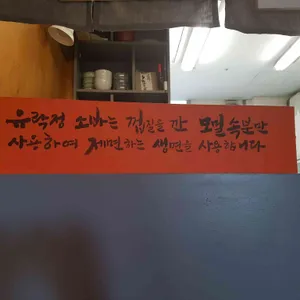 유락정 소바는 껍질을 깐 모밀속분만
사용하여 제면하는 생면을 사용합니다